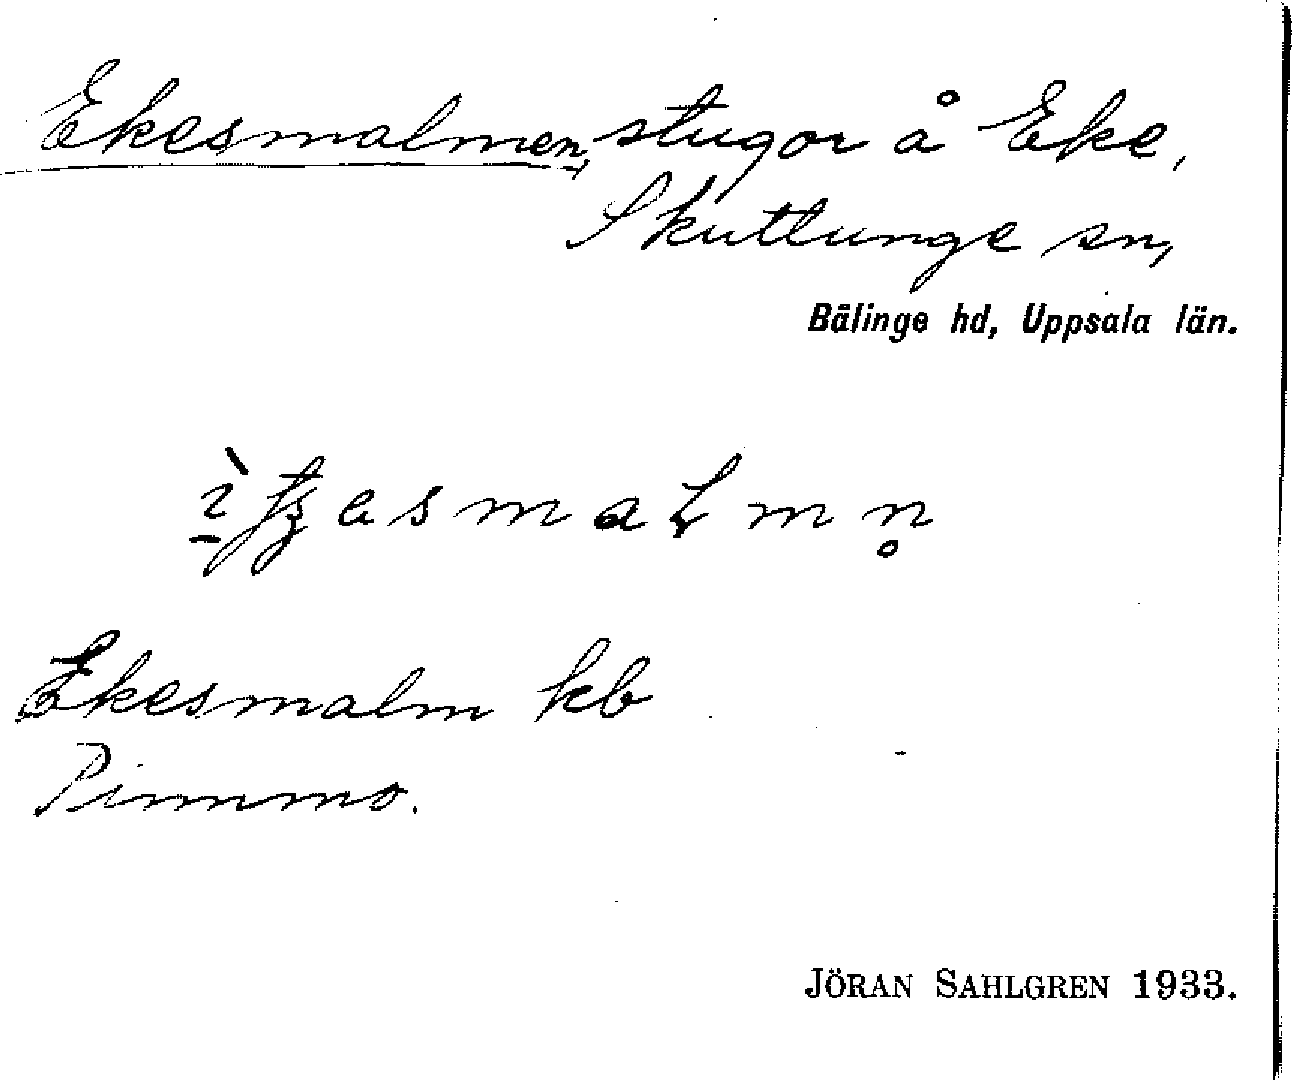 Ekesmalmen, stugor å Eke,
Skuttunge sn,
Bälinge hd, Uppsala län.
Ekesmalm kb
Pinnmo.
JÖRAN SAHLGREN 1933.